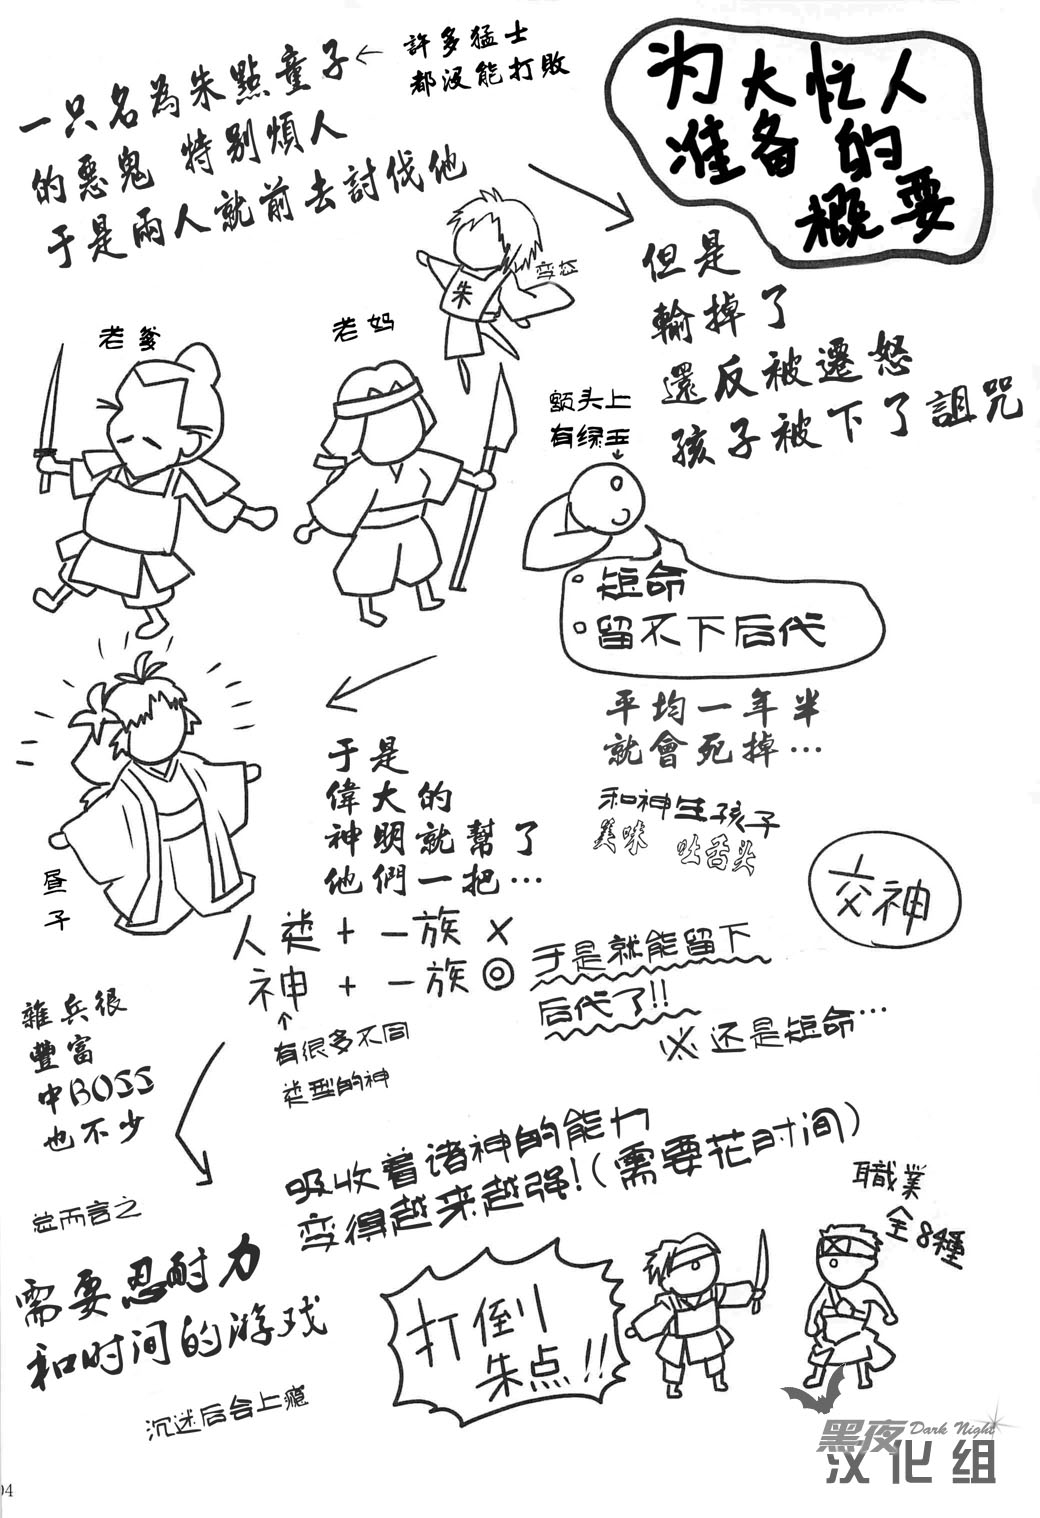 为大忙人
准备的
概要
一只名為朱點童子
的惡鬼 特别煩人
于是兩人就前去討伐他
←許多猛士
都沒能打敗
朱
老爹
老妈
但是
輸掉了
還反被遷怒
孩子被下了詛咒
额头上
有绿玉
短命
留不下后代
平均一年半
就會死掉…
于是
偉大的
神明就幫了
他們一把…
昼子
和神生孩子
美味 吐舌头
交神
人类+一族×
神+一族◎
↑
有很多不同
类型的神
于是就能留下
后代了!!
※还是短命…
雜兵很
豐富
中BOSS
也不少
吸收着诸神的能力
变得越来越强!(需要花时间)
职業
全8種
总而言之
需要忍耐力
和时间的游戏
沉迷后会上瘾
打倒
朱点!!
黑夜 Dark Night
汉化组
04